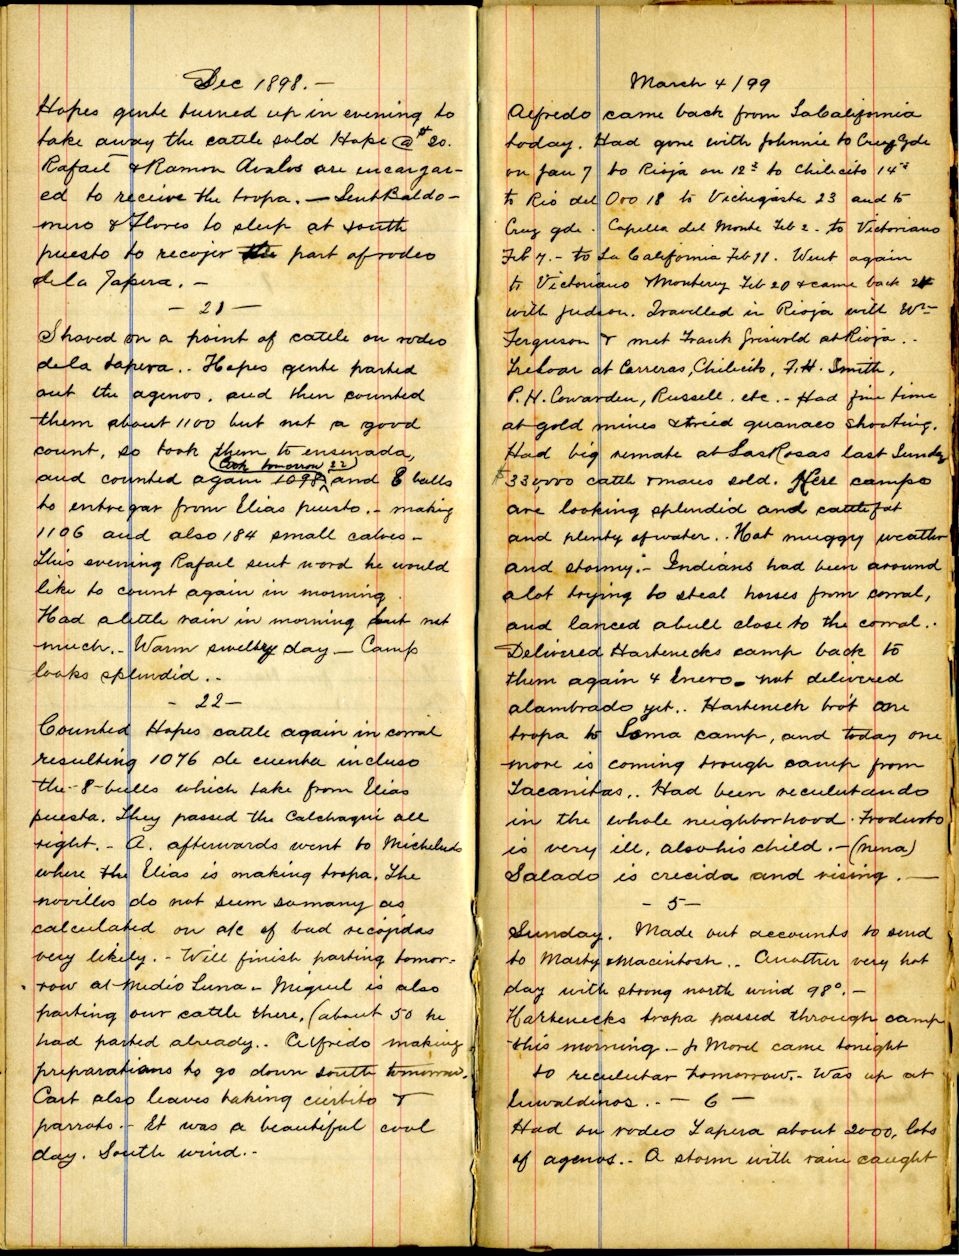 Dec 1898.-
Hopes gente turned up in evening to
take away the cattle sold Hope @ $20.
Rafael & Ramon Avalos are encargar-
ed to receive the tropa. - Sent Baldo-
mero & Flores to sleep at south
puesto to recojer the part of rodeo
de la Tapera. -
- 21 -
Shoved on a point of cattle on rodeo
de la tapera.. Hopes gente parted
out the agenos, and then counted
them about 1100 but not a good
count, so took them to ensenada,
(Cook tomorrow 22)
and counted again 1098, and 8 bulls
to entregar from Elias puesto. - making
1106 and also 184 small calves -
This evening Rafael sent word he would
like to count again in morning.
Had a little rain in morning but not
much. - Warm sweltry day - Camp
looks splendid..
- 22 -
Counted Hopes cattle again in corral
resulting 1076 de cuenta incluso
the - 8 - bulls which take from Elias
puesta. They passed the Calchaqui all
right. - A. afterwards went to Michelud
where the Elias is making tropa. The
novillos do not seem so many as
calculated on a/c of bad recojidas
very likely. - Will finish parting tomor-
row at Medio Luna - Miguel is also
parting our cattle there, (about 50 he
had parted already.. Alfredo making
preparations to go down south tomorrow.
Cart also leaves taking curbito &
parrots. - It was a beautiful cool
day. South wind. -
March 4/99
Alfredo came back from La California
today. Had gone with Johnnie to Cruz Gde
on Jan 7 to Rioja on 12th to Chilecito 14th
to Rio del Oro 18 to Vichigasta 23 and to
Cruz gde. Capilla del Monte Feb 2 - to Victoriano
Feb 7. - to La California Feb 11. Went again
to Victoriano & Monterey Feb 20 & came back 24
with Judson. Travelled in Rioja with Wm
Ferguson & met Frank Griswold at Rioja..
Treloar at Carreras, Chilecito, F. H. Smith,
P. H. Cowarden, Russell. etc. - Had fine time
at gold mines & tried guanaco shooting.
Had big remate at Las Rosas last Sunday
$330,000 cattle & mares sold. Here camps
are looking splendid and cattle fat
and plenty of water.. Hot muggy weather
and stormy. - Indians had been around
a lot trying to steal horses from corral,
and lanced a bull close to the corral..
Delivered Hartenecks camp back to
them again 4 Enero - not delivered
alambrado yet.. Harteneck bro't one
tropa to Loma camp, and today one
more is coming trough camp from
Tacanitas.. Had been reculutando
in the whole neighborhood. Frodusto
is very ill, also his child. - (nena)
Salado is crecida and rising. -
- 5 -
Sunday. Made out accounts to send
to Marty & Macintosh.. Another very hot
day with strong north wind 98°. -
Hartenecks tropa passed through camp
this morning. - Jo Morel came tonight
to reculutar tomorrow. - Was up at
Luwaldinos.. - 6 -
Had on rodeo Tapera about 2000, lots
of agenos. - A storm with rain caught